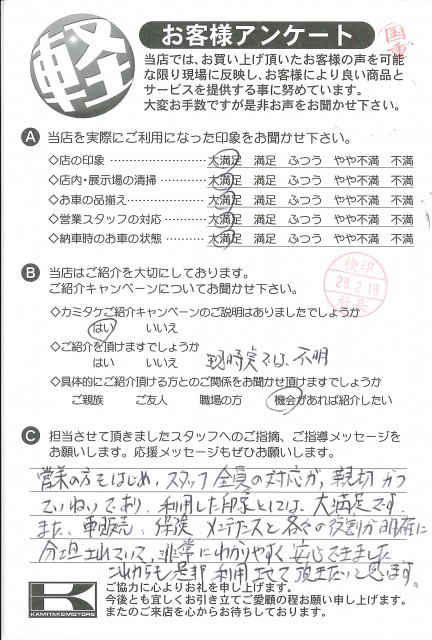 軽
お客様アンケート
国重
当店では、お買い上げ頂いたお客様の声を可能
な限り現場に反映し、お客様により良い商品と
サービスを提供する事に努めています。
大変お手数ですが是非お声をお聞かせ下さい。
A 当店を実際にご利用になった印象をお聞かせ下さい。
◇店の印象 大満足 満足 ふつう やや不満 不満
◇店内・展示場の清掃 大満足 満足 ふつう やや不満 不満
◇お車の品揃え 大満足 満足 ふつう やや不満 不満
◇営業スタッフの対応 大満足 満足 ふつう やや不満 不満
◇納車時のお車の状態 大満足 満足 ふつう やや不満 不満
B 当店はご紹介を大切にしております。
ご紹介キャンペーンについてお聞かせ下さい。
検印
28.2.18
社長
◇カミタケご紹介キャンペーンのご説明はありましたでしょうか
はい いいえ
◇ご紹介を頂けますでしょうか
はい いいえ 現時点では、不明
◇具体的にご紹介頂ける方とのご関係をお聞かせ頂けますでしょうか
ご親族 ご友人 職場の方 機会があれば紹介したい
C 担当させて頂きましたスタッフへのご指摘、ご指導メッセージを
お願いします。応援メッセージもぜひお願いします。
営業の方をはじめ、スタッフ全員の対応が、親切かつ
ていねいであり、利用した印象としては、大満足です。
また、車販売、保険、メンテナンスと各々の役割が明確に
分担されていて、非常にわかりやすく安心できました
これからも是非利用させて頂きたいと思います。
KAMITAKEMOTORS
ご協力に心よりお礼を申し上げます。
今後とも宜しくお引き立てご愛顧の程お願い申し上げます。
またのご来店を心からお待ちしております。